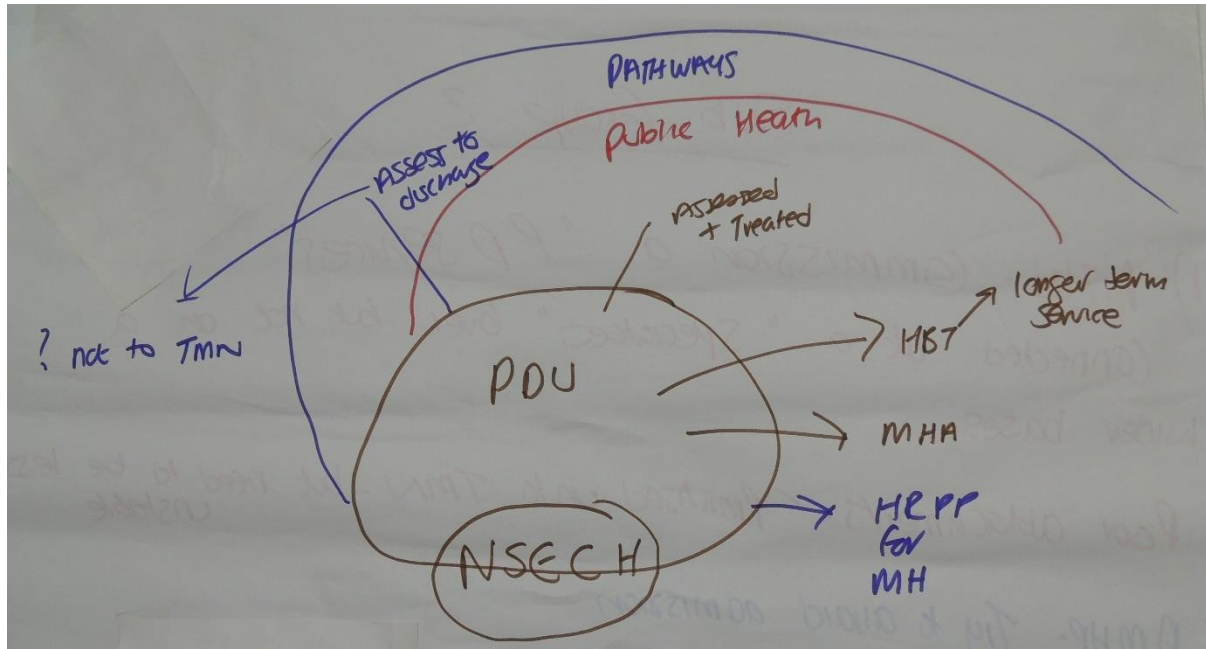 PATHWAYS
Public Heath
Assess to
discharge
Assessed
+ Treated
? not to TMN
PDU
HBT
longer term
Service
MHA
HRPP
for
MH
NSECH